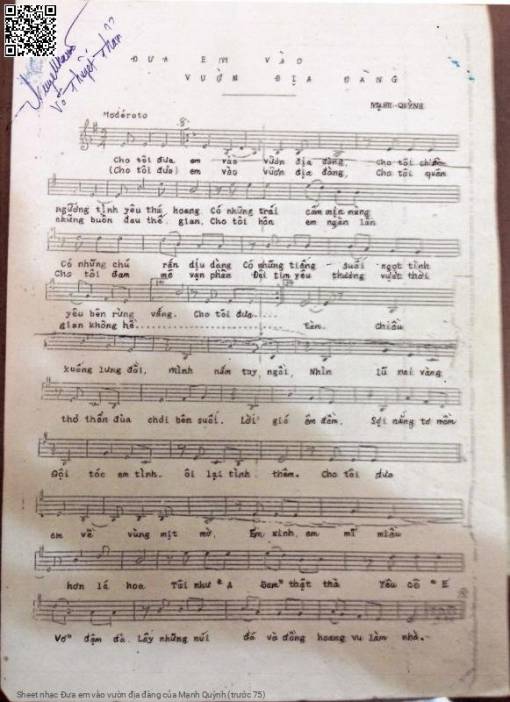 ĐƯA EM VÀO
VƯỜN ĐỊA ĐÀNG
MẠNH QUỲNH
Moderato
Cho tôi đưa em vào vườn địa đàng, Cho tôi chiêm
(Cho tôi đưa) em vào vườn địa đàng, Cho tôi quên
ngưỡng tình yêu thú hoang. Có những trái cấm mịn màng
những buồn đau thế gian, Cho tôi hôn em ngàn lần
Có những chú rắn dịu dàng Có những tiếng suối ngọt tình
Cho tôi đam mê vạn phần Đội tim yêu thương vượt thời
yêu bên rừng vắng. Cho tôi đưa....
gian không hề.................. tàn. Chiều
xuống lưng đồi, mình nắm tay, ngồi, Nhìn lũ nai vàng
thơ thẩn đùa chơi bên suối. Lời gió êm đềm, Sợi nắng tơ mềm
Đội tóc em tình. ôi lại tình thêm. Cho tôi đưa
em về vùng mịt mờ, Em xinh, em mĩ miều
hơn lá hoa Tôi như "A Đam" thật thà Yêu cô "E
Vơ" đậm đà. Lấy những núi đá và đồng hoang vu làm nhà.-
Sheet nhạc Đưa em vào vườn địa đàng của Mạnh Quỳnh (trước 75)